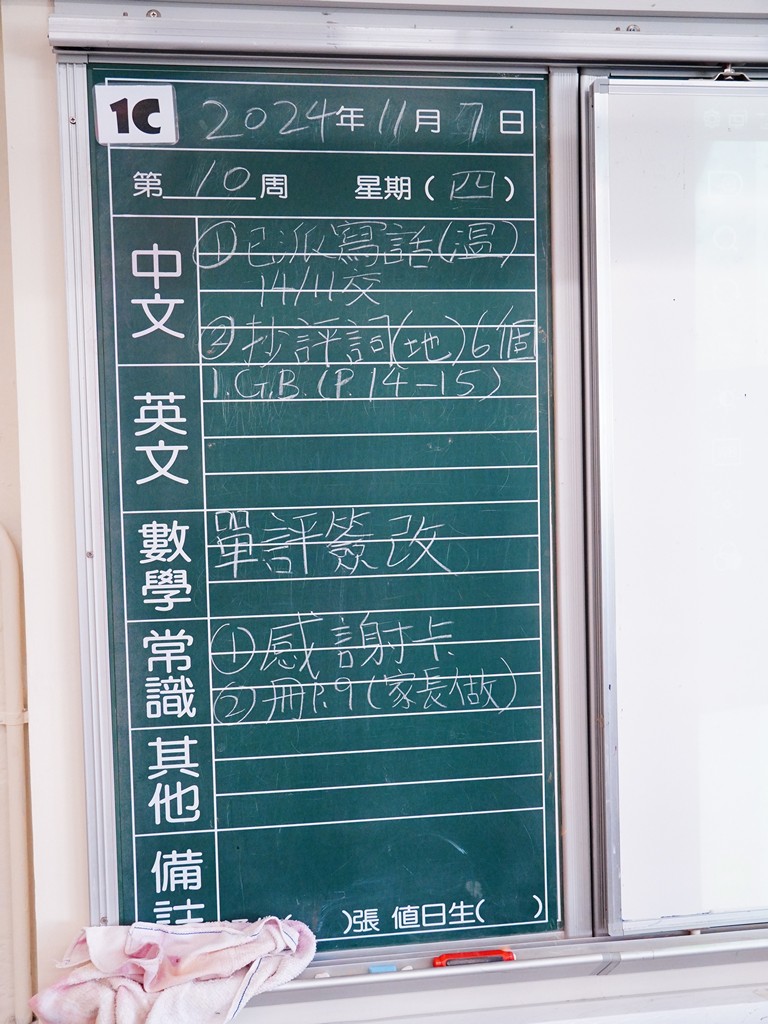 1C 2024年11月7日
第10周 星期(四)
中文
①已派寫話(溫)
14/11交
②抄評詞(地)6個
英文
1.G.B.(P.14-15)
數學
單評簽改
常識
①感謝卡
②冊P.9(家長做)
其他
備註
)張 值日生( )